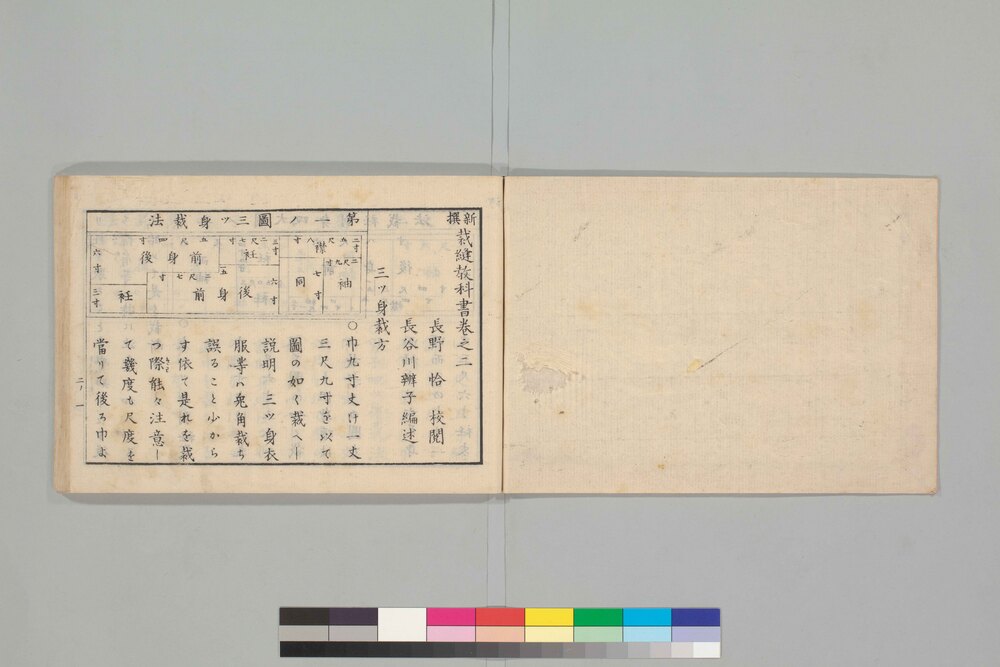 新撰裁縫教科書巻之二
長野恰の校閲
長谷川辨子編述
三ツ身裁方
第一ノ圖三ツ身裁法
二寸
五尺
八寸
襟
袖
二尺九寸
七寸
同
三寸
二尺七寸
衽
六寸
後
身
五
前
五尺四寸
身
後
二尺七寸
前
六寸
三寸
衽
〇巾九寸丈け一丈
三尺九寸を以て
圖の如く裁へし
説明 三ツ身衣
服等ハ兎角裁ち
誤ること少から
す依て是れを裁
つ際能々注意し
て幾度も尺度を
當りて後ろ巾よ
二ノ一